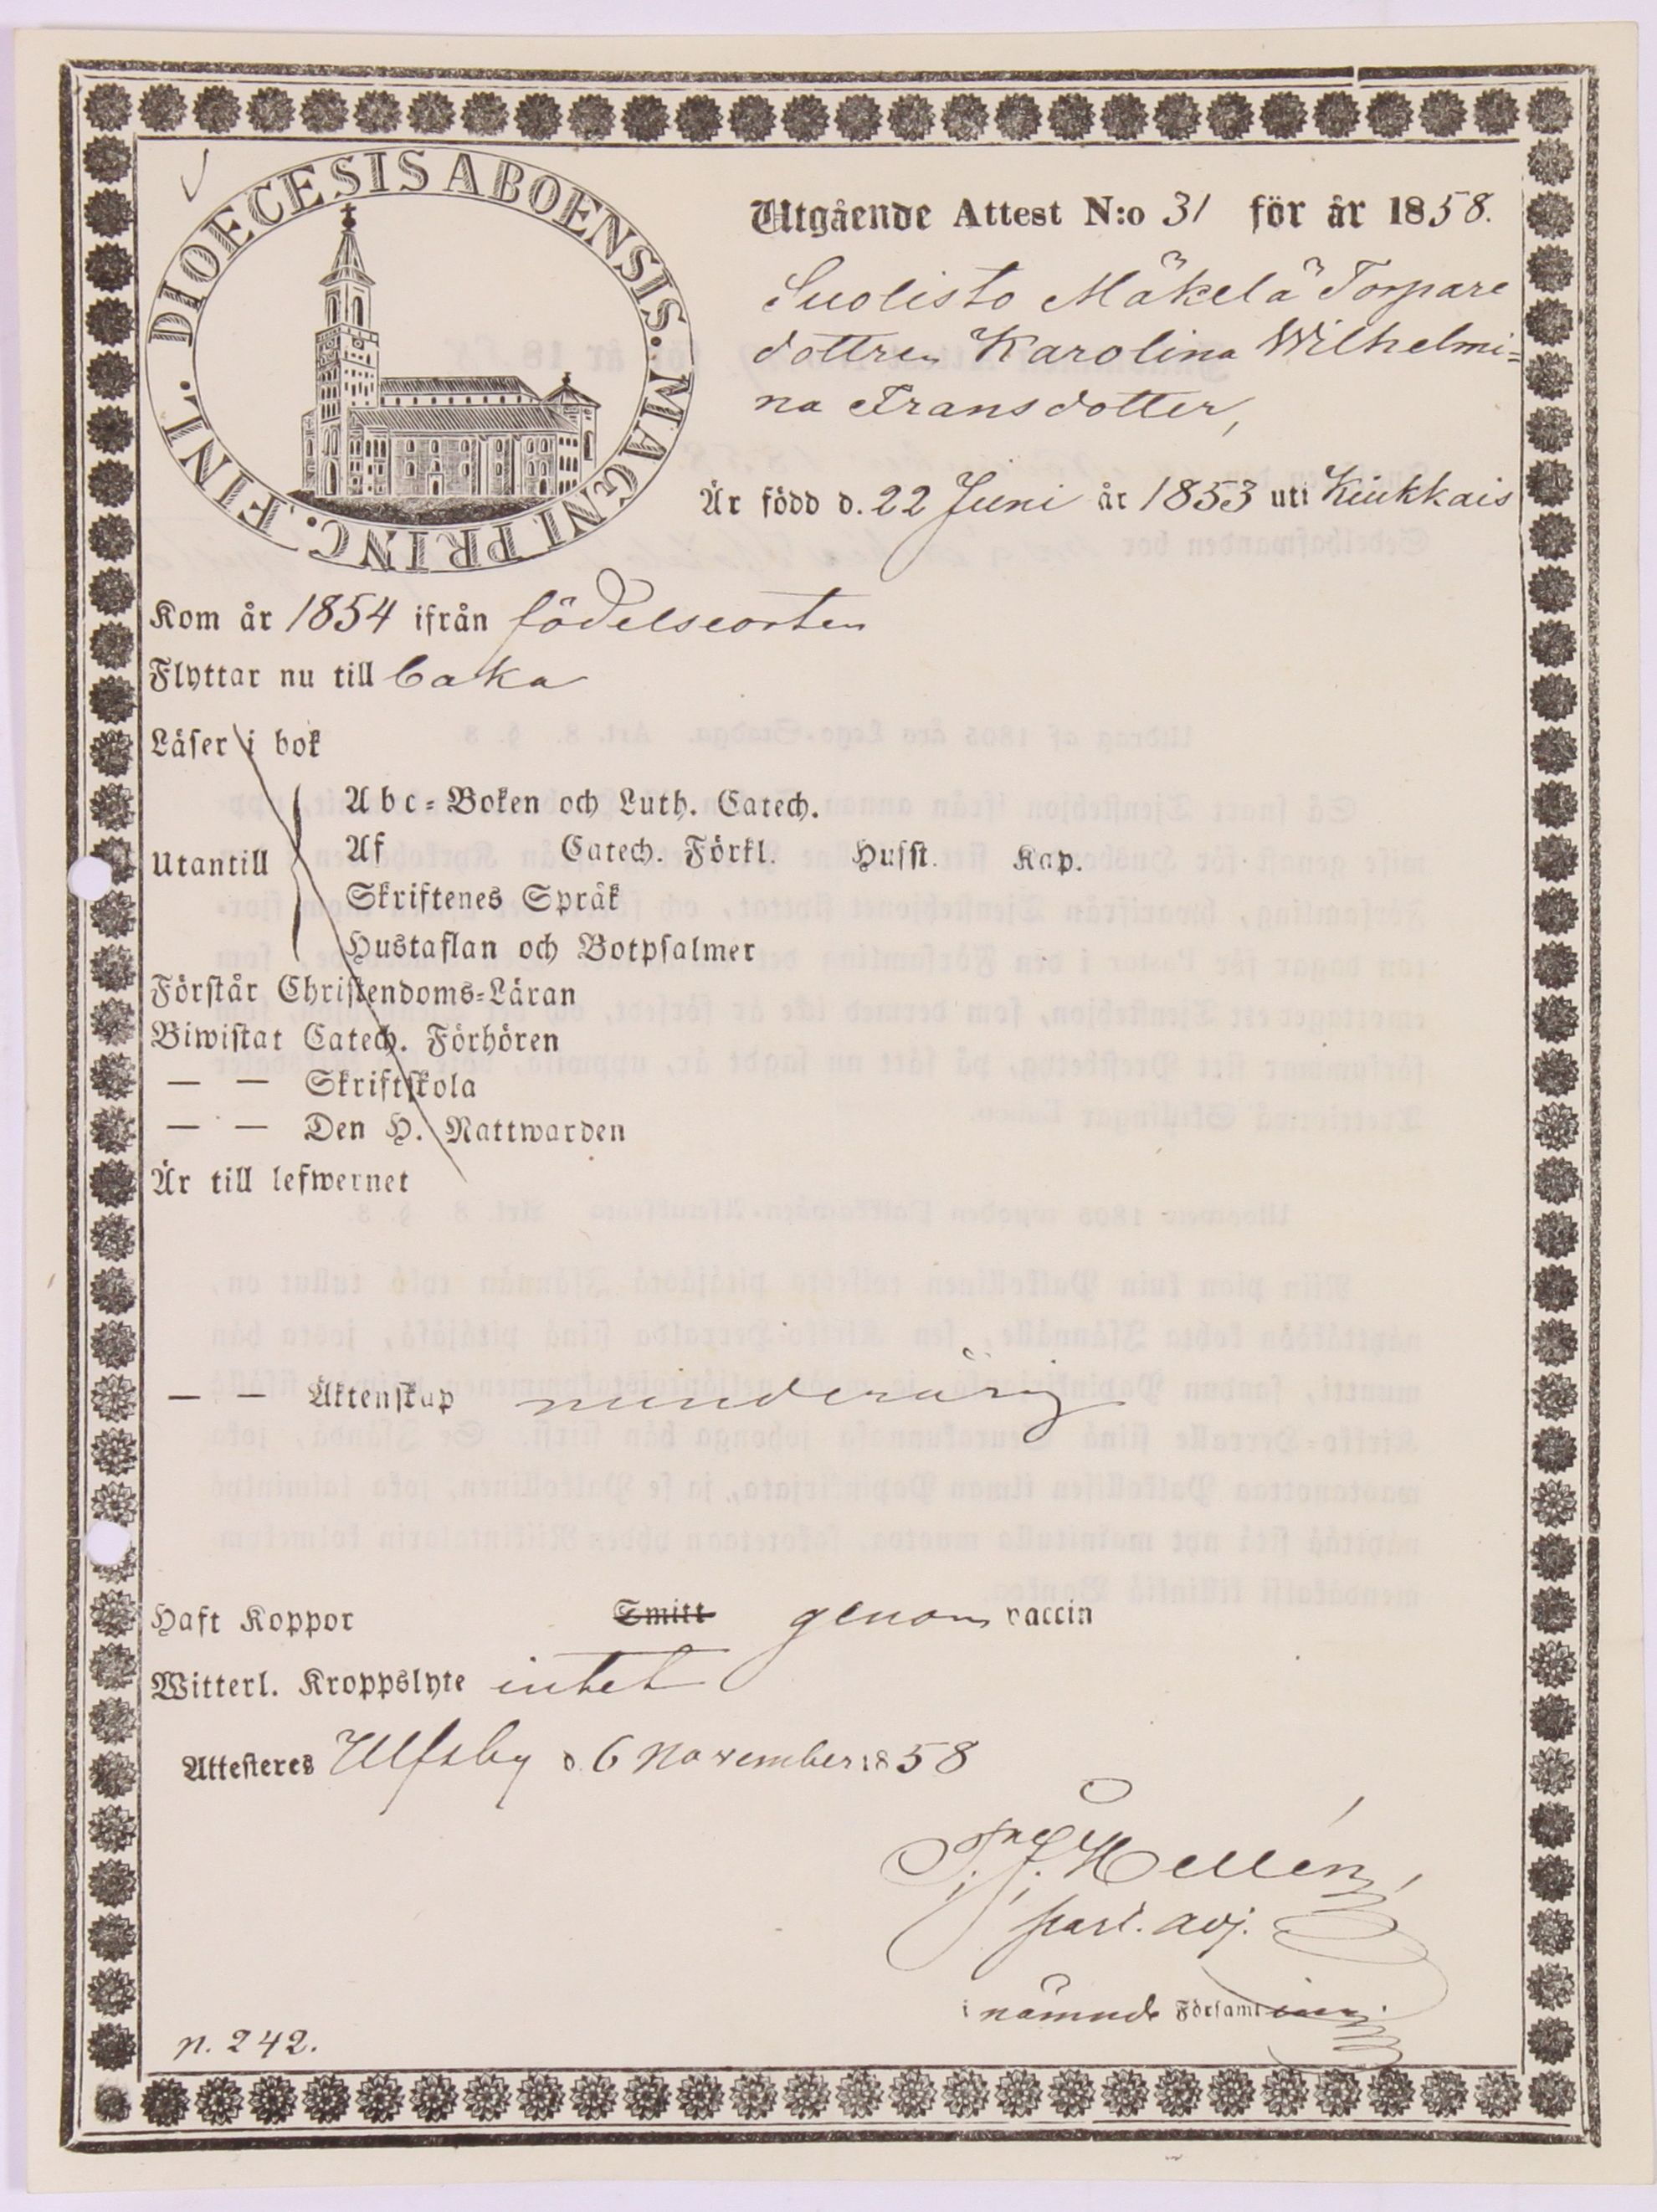 DIOECESIS ABOENSIS. MAGNI PRINC. FINL.
Utgående Attest N:o 31 för år 1858.
Suolisto Mäkelä Torpare
dottren Karolina Wilhelmi=
na Fransdotter,
Är född d. 22 Juni år 1853 uti Kiukkais
Kom år 1854 ifrån födelseorten
Flyttar nu till baka
Läser i bok
Abc=Boken och Luth. Catech.
Utantill Af Catech. Förkl. Husst. Kap.
Skriftenes Språk
Hustaflan och Botpsalmer
Förstår Christendoms=Läran
Biwistat Catech. Förhören
— — Skriftskola
— — Den H. Nattwarden
Är till lefwernet
— — Äktenskap minderårig
Haft Koppor Smitt genom vaccin
Witterl. Kroppslyte intet
Attesteres Ulfsby d. 6 November 1858
Hellén,
past. adj.
i nämnde Församling.
p. 242.